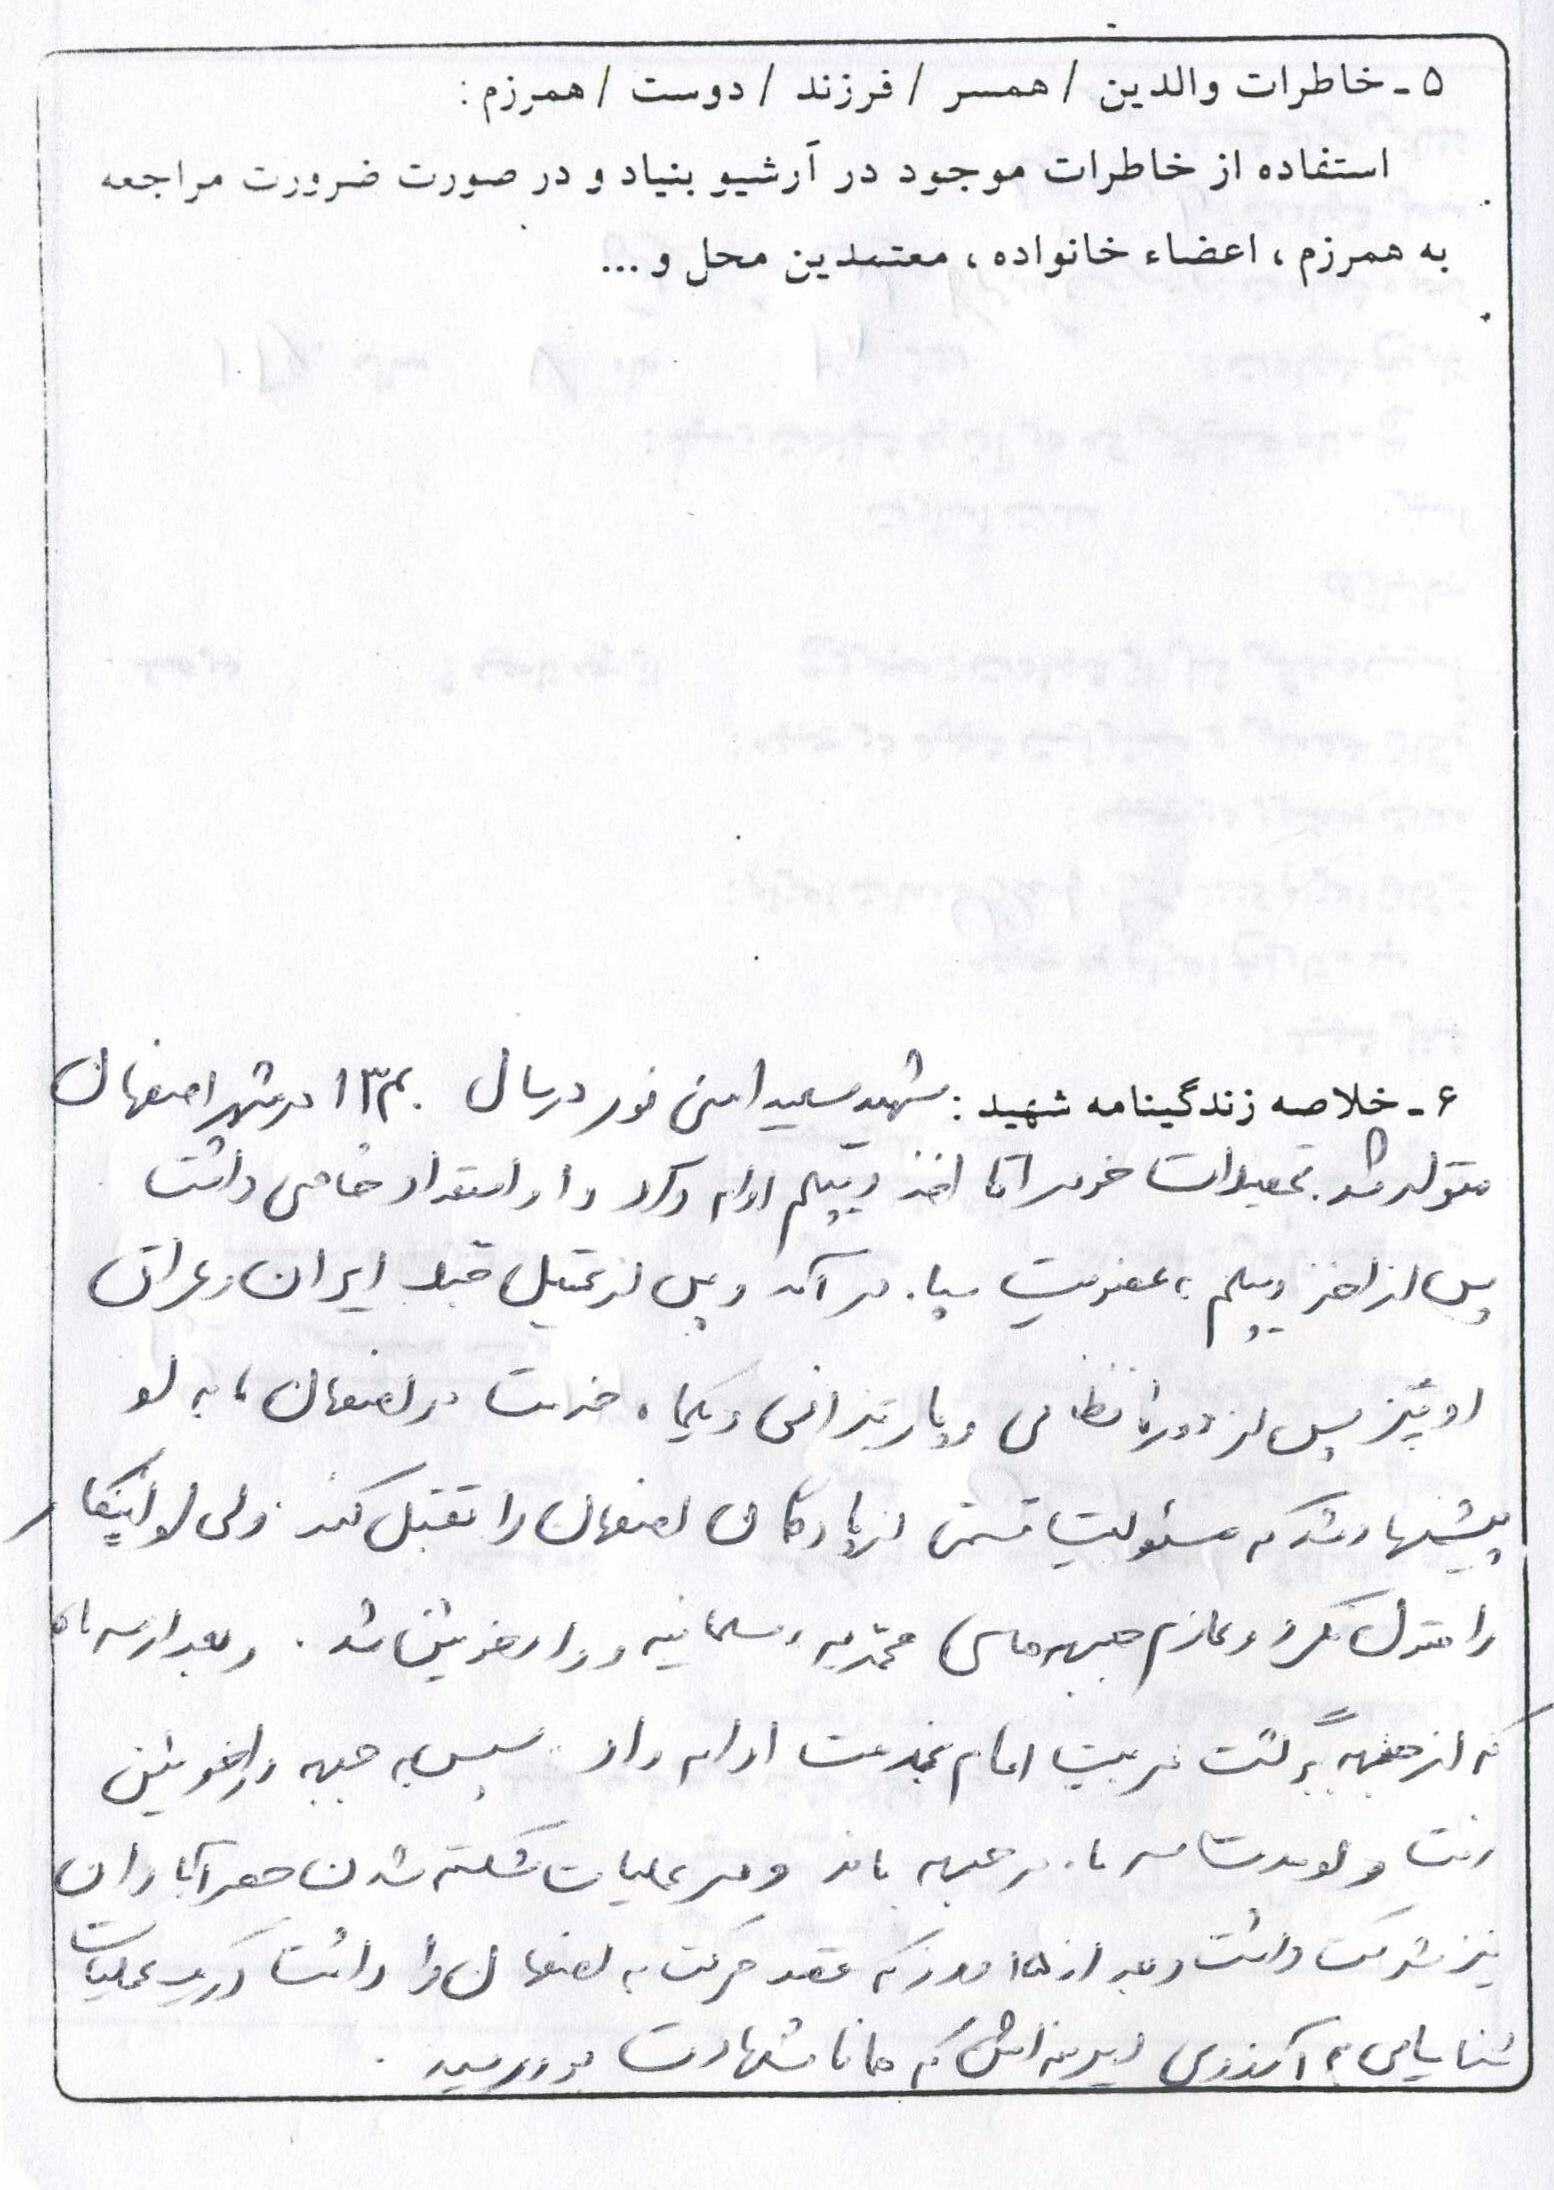 ۵ ـ خاطرات والدین / همسر / فرزند / دوست / همرزم :
استفاده از خاطرات موجود در آرشیو بنیاد و در صورت ضرورت مراجعه
به همرزم ، اعضاء خانواده ، معتمدین محل و ...
۶ ـ خلاصه زندگینامه شهید : شهید سعید امینی فور در سال ۱۳۴۰ در شهر اصفهان
متولد شد. تحصیلات خود را تا اخذ دیپلم ادامه داد و او استعداد خاصی داشت
پس از اخذ دیپلم به عضویت سپاه در آمد و پس از تحمیل جنگ ایران و عراق
او نیز پس از دوره نظامی و پارتیزانی و یکماه خدمت در اصفهان به او
پیشنهاد شد که مسئولیت قسمتی از پادگان اصفهان را تقبل کند ولی او اینکار
را قبول نکرد و عازم جبهه‌های محمدیه و سلمانیه و دارخوئین شد . و بعد از سه ماه
که از جبهه برگشت در بیت امام بخدمت ادامه داد . سپس به جبهه دارخوئین
رفت و او مدت سه ماه در جبهه ماند و در عملیات شکسته شدن حصر آبادان
نیز شرکت داشت و بعد از ۱۵ روز که قصد حرکت به اصفهان را داشت در یک عملیات
شناسایی به آرزوی دیرینه‌اش که همانا شهادت بود رسید .